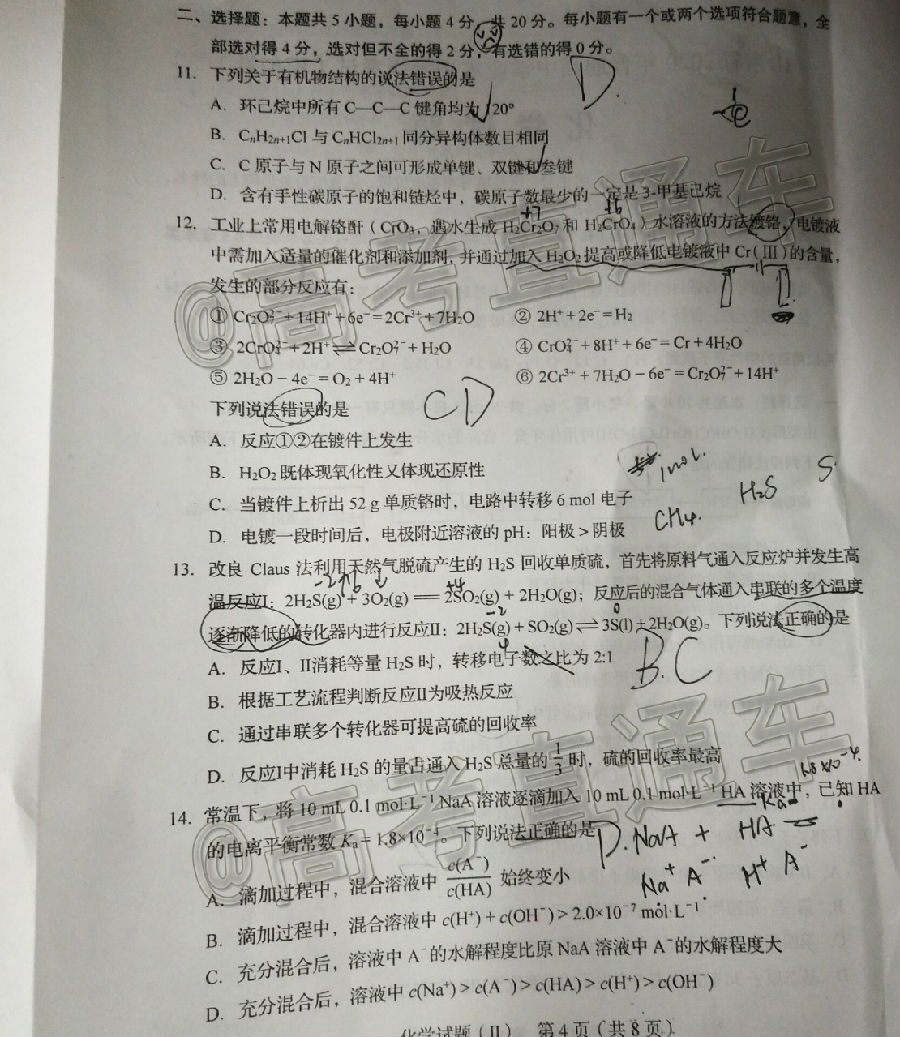 二、选择题：本题共5小题，每小题4分，共20分。每小题有一个或两个选项符合题意，全
部选对得4分，选对但不全的得2分，有选错的得0分。
11. 下列关于有机物结构的说法错误的是
D.
A. 环己烷中所有C—C—C键角均为120°
B. CₙH₂ₙ₊₁Cl与CₙHCl₂ₙ₊₁同分异构体数目相同
C. C原子与N原子之间可形成单键、双键和叁键
D. 含有手性碳原子的饱和链烃中，碳原子数最少的一定是3-甲基己烷
+7 +6
12. 工业上常用电解铬酐（CrO₃，遇水生成H₂Cr₂O₇和H₂CrO₄）水溶液的方法镀铬，电镀液
中需加入适量的催化剂和添加剂，并通过加入H₂O₂提高或降低电镀液中Cr(Ⅲ)的含量，
发生的部分反应有：
① Cr₂O₇²⁻+14H⁺+6e⁻=2Cr³⁺+7H₂O ② 2H⁺+2e⁻=H₂
③ 2CrO₄²⁻+2H⁺⇌Cr₂O₇²⁻+H₂O ④ CrO₄²⁻+8H⁺+6e⁻=Cr+4H₂O
⑤ 2H₂O－4e⁻=O₂+4H⁺ ⑥ 2Cr³⁺+7H₂O－6e⁻=Cr₂O₇²⁻+14H⁺
下列说法错误的是
CD
A. 反应①②在镀件上发生
B. H₂O₂既体现氧化性又体现还原性
1mol.
C. 当镀件上析出52 g单质铬时，电路中转移6 mol电子
CH₄. H₂S S
D. 电镀一段时间后，电极附近溶液的pH：阳极>阴极
13. 改良Claus法利用天然气脱硫产生的H₂S回收单质硫，首先将原料气通入反应炉并发生高
-2 +4
温反应Ⅰ：2H₂S(g)+3O₂(g)══2SO₂(g)+2H₂O(g)；反应后的混合气体通入串联的多个温度
-2 0
逐渐降低的转化器内进行反应Ⅱ：2H₂S(g)+SO₂(g)⇌3S(l)+2H₂O(g)。下列说法正确的是
4
B.C
A. 反应Ⅰ、Ⅱ消耗等量H₂S时，转移电子数之比为2:1
B. 根据工艺流程判断反应Ⅱ为吸热反应
C. 通过串联多个转化器可提高硫的回收率
D. 反应Ⅰ中消耗H₂S的量占通入H₂S总量的1/3时，硫的回收率最高
14. 常温下，将10 mL 0.1 mol·L⁻¹NaA溶液逐滴加入10 mL 0.1 mol·L⁻¹HA溶液中，已知HA
的电离平衡常数Kₐ=1.8×10⁻⁴。下列说法正确的是
Ka= 1.8×10⁻⁴.
D. NaA + HA =
Na⁺ A⁻. H⁺ A⁻
A. 滴加过程中，混合溶液中c(A⁻)/c(HA)始终变小
B. 滴加过程中，混合溶液中c(H⁺)+c(OH⁻)>2.0×10⁻⁷ mol·L⁻¹
C. 充分混合后，溶液中A⁻的水解程度比原NaA溶液中A⁻的水解程度大
D. 充分混合后，溶液中c(Na⁺)>c(A⁻)>c(HA)>c(H⁺)>c(OH⁻)
化学试题（II） 第4页（共8页）
@高考直通车
@高考直通车